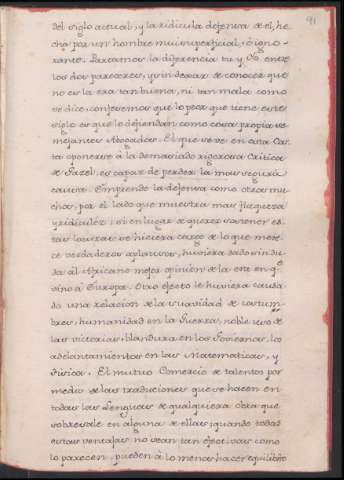 91
del siglo actual, y la ridicula defensa de el, he-
cha por un hombre mui superficial, ó igno-
rante. Partamos la diferencia tu y Yo entre
los dos pareceres, y sin dexar de conocer que
no es la era tan buena, ni tan mala como
se dice, confesemos que lo peor que tiene este
siglo es que lo defiendan como cosa propia se-
mejantes Abogados. El que se ve en esta Car-
ta oponerse á la demasiado rigorosa Critica
de Gazel, es capaz de perder la mas segura
causa. Emprende la defensa como otros mu-
chos, por el lado que muestra mas flaqueza
y ridiculéz: si en lugar de querer sostener es-
tas locuras se hiciera cargo de lo que mere-
ce verdaderos aplausos, huviera dado sin du-
da al Africano mejor opinion de la era en q.e
vino á Europa. Otro efecto le huviera causa-
do una relacion de la suavidad de costum-
bres, humanidad en la Guerra, noble uso de
las victorias, blandura en los Goviernos, los
adelantamientos en las Matematicas, y
Fisica. El mutuo Comercio de talentos por
medio de las traduciones que se hacen en
todas las Lenguas de qualquiera obra que
sobresale en alguna de ellas; quando todas
estas ventajas no sean tan efectivas como
lo parecen, pueden á lo menos hacer equilibrio